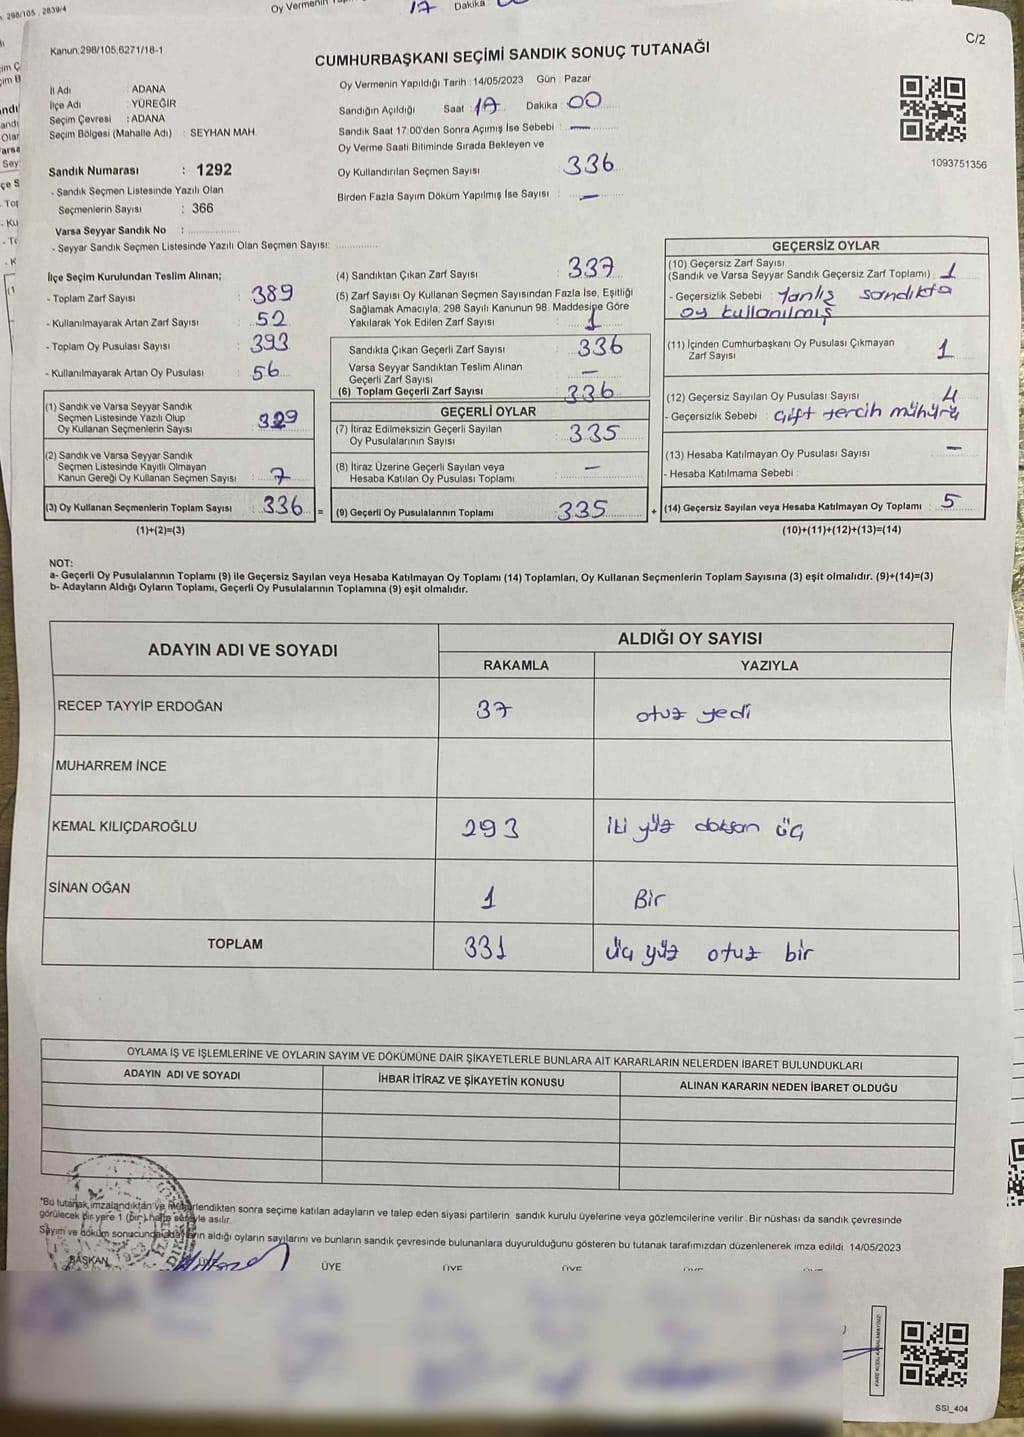 298/105 , 2839/4
Oy Vermenin
17 Dakika
Kanun.298/105,6271/18-1
C/2
CUMHURBAŞKANI SEÇİMİ SANDIK SONUÇ TUTANAĞI
İl Adı : ADANA
İlçe Adı : YÜREĞİR
Seçim Çevresi : ADANA
Seçim Bölgesi (Mahalle Adı) : SEYHAN MAH
Oy Vermenin Yapıldığı Tarih : 14/05/2023 Gün : Pazar
Sandığın Açıldığı Saat : 17 Dakika : 00
Sandık Saat 17:00'den Sonra Açımış İse Sebebi : —
Oy Verme Saati Bitiminde Sırada Bekleyen ve
Oy Kullandırılan Seçmen Sayısı : 336
Birden Fazla Sayım Döküm Yapılmış İse Sayısı : —
1093751356
Sandık Numarası : 1292
- Sandık Seçmen Listesinde Yazılı Olan
Seçmenlerin Sayısı : 366
Varsa Seyyar Sandık No :
- Seyyar Sandık Seçmen Listesinde Yazılı Olan Seçmen Sayısı:
İlçe Seçim Kurulundan Teslim Alınan;
- Toplam Zarf Sayısı : 389
- Kullanılmayarak Artan Zarf Sayısı : 52
- Toplam Oy Pusulası Sayısı : 393
- Kullanılmayarak Artan Oy Pusulası : 56
(1) Sandık ve Varsa Seyyar Sandık
Seçmen Listesinde Yazılı Olup
Oy Kullanan Seçmenlerin Sayısı : 329
(2) Sandık ve Varsa Seyyar Sandık
Seçmen Listesinde Kayıtlı Olmayan
Kanun Gereği Oy Kullanan Seçmen Sayısı : 7
(3) Oy Kullanan Seçmenlerin Toplam Sayısı : 336
(1)+(2)=(3)
(4) Sandıktan Çıkan Zarf Sayısı : 337
(5) Zarf Sayısı Oy Kullanan Seçmen Sayısından Fazla İse, Eşitliği
Sağlamak Amacıyla, 298 Sayılı Kanunun 98. Maddesine Göre
Yakılarak Yok Edilen Zarf Sayısı : 1
Sandıkta Çıkan Geçerli Zarf Sayısı : 336
Varsa Seyyar Sandıktan Teslim Alınan
Geçerli Zarf Sayısı : —
(6) Toplam Geçerli Zarf Sayısı : 336
GEÇERLİ OYLAR
(7) İtiraz Edilmeksizin Geçerli Sayılan
Oy Pusulalarının Sayısı : 335
(8) İtiraz Üzerine Geçerli Sayılan veya
Hesaba Katılan Oy Pusulası Toplamı : —
= (9) Geçerli Oy Pusulalarının Toplamı : 335
GEÇERSİZ OYLAR
(10) Geçersiz Zarf Sayısı
(Sandık ve Varsa Seyyar Sandık Geçersiz Zarf Toplamı) : 1
- Geçersizlik Sebebi : Yanlış sandıkta
oy kullanılmış
(11) İçinden Cumhurbaşkanı Oy Pusulası Çıkmayan
Zarf Sayısı : 1
(12) Geçersiz Sayılan Oy Pusulası Sayısı : 4
- Geçersizlik Sebebi : Çift tercih mühürü
(13) Hesaba Katılmayan Oy Pusulası Sayısı : —
- Hesaba Katılmama Sebebi :
+ (14) Geçersiz Sayılan veya Hesaba Katılmayan Oy Toplamı : 5
(10)+(11)+(12)+(13)=(14)
NOT:
a- Geçerli Oy Pusulalarının Toplamı (9) ile Geçersiz Sayılan veya Hesaba Katılmayan Oy Toplamı (14) Toplamları, Oy Kullanan Seçmenlerin Toplam Sayısına (3) eşit olmalıdır. (9)+(14)=(3)
b- Adayların Aldığı Oyların Toplamı, Geçerli Oy Pusulalarının Toplamına (9) eşit olmalıdır.
ADAYIN ADI VE SOYADI
ALDIĞI OY SAYISI
RAKAMLA YAZIYLA
RECEP TAYYİP ERDOĞAN 37 otuz yedi
MUHARREM İNCE
KEMAL KILIÇDAROĞLU 293 iki yüz doksan üç
SİNAN OĞAN 1 Bir
TOPLAM 331 üç yüz otuz bir
OYLAMA İŞ VE İŞLEMLERİNE VE OYLARIN SAYIM VE DÖKÜMÜNE DAİR ŞİKAYETLERLE BUNLARA AİT KARARLARIN NELERDEN İBARET BULUNDUKLARI
ADAYIN ADI VE SOYADI İHBAR İTİRAZ VE ŞİKAYETİN KONUSU ALINAN KARARIN NEDEN İBARET OLDUĞU
"Bu tutanak imzalandıktan ve mühürlendikten sonra seçime katılan adayların ve talep eden siyasi partilerin sandık kurulu üyelerine veya gözlemcilerine verilir. Bir nüshası da sandık çevresinde
görülecek bir yere 1 (bir) hafta süreyle asılır.
Sayım ve döküm sonucunda adayların aldığı oyların sayılarını ve bunların sandık çevresinde bulunanlara duyurulduğunu gösteren bu tutanak tarafımızdan düzenlenerek imza edildi. 14/05/2023
BAŞKAN ÜYE ÜYE ÜYE
SSI_404